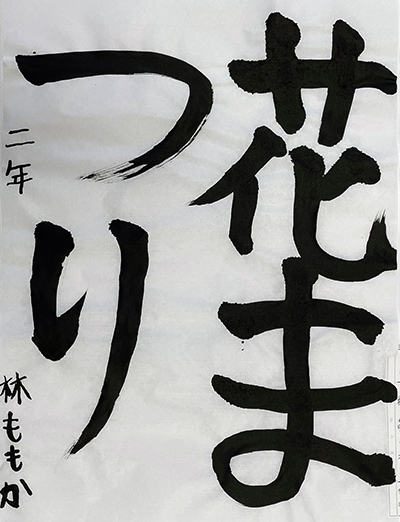 花ま
つり
二年
林ももか